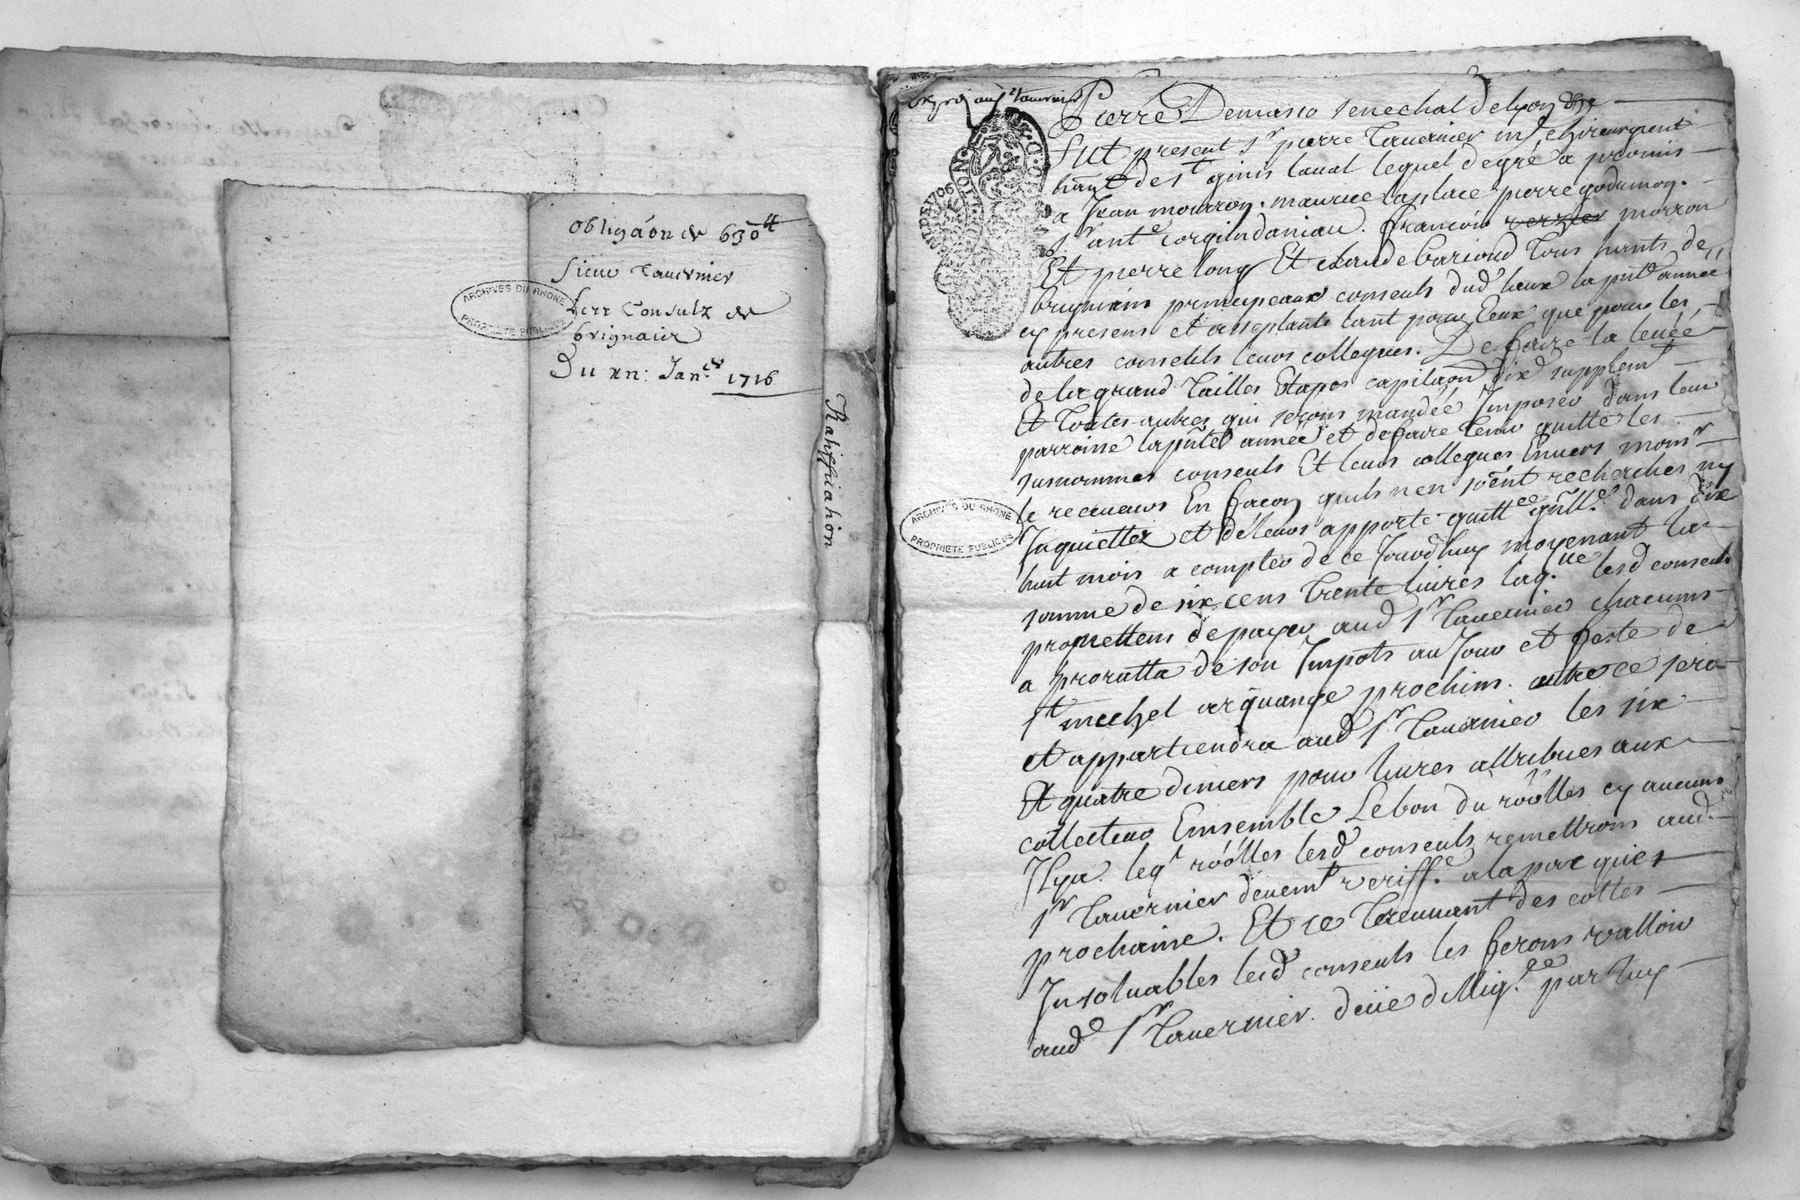 obligãon de 630 ₶
Sieur Tavernier
ARCHIVES DU RHONE
PROPRIETE PUBLIQUE
Les Consulz de
brignais
Du xii: Jan.er 1716
Ratiffication
GN. DE LYON
Pierre Demasso senechal de lyon
Fut present Sr pierre Tavernier me chirurgient
hant de st ginis laval lequel de gré a promis
a Jean mourron. maurice laplace pierre godimon.
Sr ante François verzier morron
Et pierre long Et claude bariond tous hants de
brignais principeaux consuls dud lieux la pnte année
cy presens et acseptants tant pour Eeux que pour les
autres consulls leurs collegues. De faire la levéé
de la grand tailles Etapes capitãon dixe supplemt
Et toutes autres qui serons mandéé Imposer dans leur
parroisse la pnte année et de faire tenir quitte les
susnommes consuls Et leurs collegues Envers monsr
le receveurs En facon quils nen soient recherches ny
Inquiettez et de leurs apporte quittce gnlle dans dix
huit mois a compter de ce Jourdhuy moyenant la
somme de six cens trente livres laq.lle lesd consuls
promettens de payer aud Sr Tavernier chacuns
a proratta de son Impots au Jour et feste de
St michel arquange prochins. outre ce sera
et appartiendra aud Sr Tavernier les six
Et quatre deniers pour livres attribues aux
collecteur Ensemble Le bon du róólles cy aucuns
Ilya. leqt róólles lesd consuls remettrons aud
Sr Tavernier deuemt veriffe. a la pacques
prochaine. Et ce trouvant des cottes
Insoluables lesd consuls les ferons valloir
aud Sr Tavernier. deüe dillig.ce par luy
ARCHIVES DU RHONE
PROPRIETE PUBLIQUE